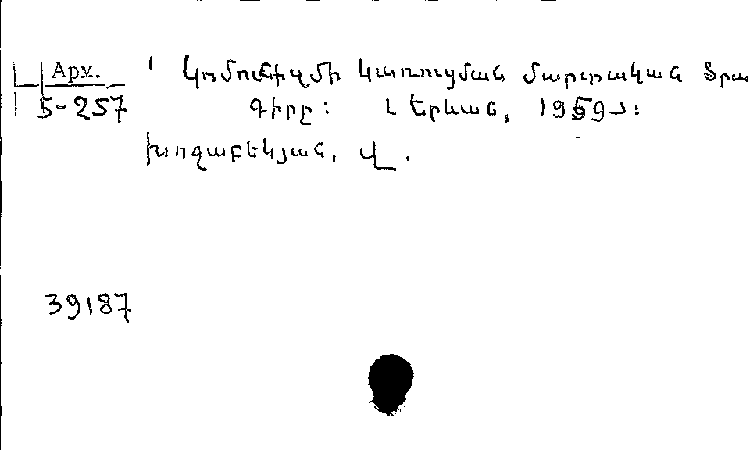 Арм. Կոմունիզմի կառուցման մարտական ծրա
5-257 գիրը: [Երևան, 1959]:
Խոջաբեկյան, Վ.
39187